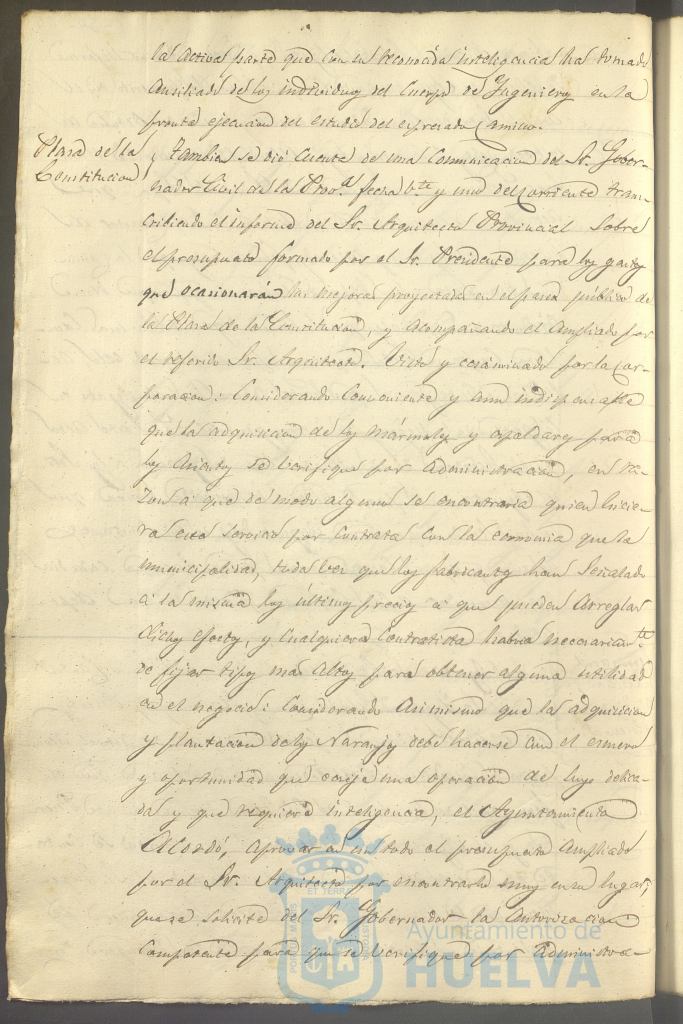 la activa parte que con su reconocida inteligencia ha tomado
ausiliado de los individuos del Cuerpo de Ingenieros en la
pronta ejecucion del estudio del espresado Camino.
Plaza de la
Constitucion
y tambien se dió cuenta de una comunicacion del Sr. Gober-
nador Civil de la Prov.ª fecha bte y uno del corriente trans-
cribiendo el informe del Sr. Arquitecto Provincial sobre
el presupuesto formado por el Sr. Presidente para los gastos
que ocasionarán las mejoras proyectadas en el paseo público de
la Plaza de la Constitucion, y acompañando el ampliado por
el referido Sr. Arquitecto. Visto y ecsaminado por la Cor-
poracion: Considerando conveniente y aun indispensable
que la adquisicion de los mármoles y espaldares para
los asientos se verifique por administracion, en ra-
zon á que de modo alguno se encontraria quien hicie-
ra este servicio por contrata con la economia que la
municipalidad, toda vez que los fabricantes han señalado
á la misma los últimos precios á que pueden arreglar
dichos efectos, y cualquiera contratista habria necesariamte
de fijar tipos mas altos para obtener alguna utilidad
en el negocio: Considerando asi mismo que la adquisicion
y plantacion de los Naranjos debe hacerse con el esmero
y oportunidad que ecsije una operacion de suyo delica-
da y que requiere inteligencia, el Ayuntamiento
Acordó, aprovar en un todo el presupuesto ampliado
por el Sr. Arquitecto por encontrarlo muy en su lugar;
que se solicite del Sr. Gobernador la autorizacion
competente para que se verifique por administra-
Ayuntamiento de
HUELVA